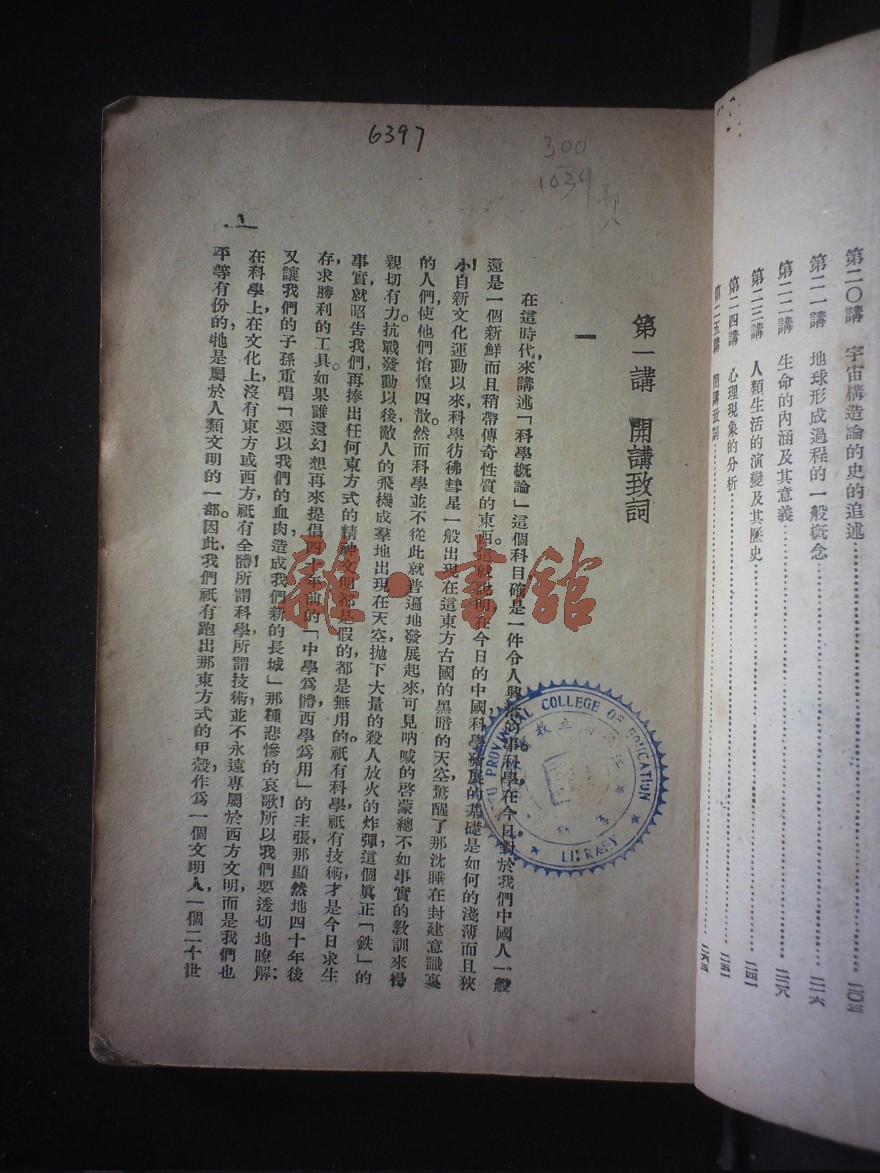 第二〇講 宇宙構造論的史的追述……二〇三
第二一講 地球形成過程的一般概念……二一六
第二二講 生命的內涵及其意義……二二八
第二三講 人類生活的演變及其歷史……二四一
第二四講 心理現象的分析……二五一
第二五講 閉講致詞……二六三
6397
300
1039
第一講 開講致詞
一
在這時代，來講述「科學概論」這個科目，確是一件令人興奮的事。科學在今日，對於我們中國人，一般
還是一個新鮮而且稍帶傳奇性質的東西。這就說明在今日的中國，科學發展的基礎是如何的淺薄而且狹
小！自新文化運動以來，科學彷彿彗星一般出現在這東方古國的黑暗的天空，驚醒了那沈睡在封建意識裏
的人們，使他們愴惶四散。然而科學並不從此就普遍地發展起來，可見吶喊的啓蒙，總不如事實的教訓來得
親切有力。抗戰發動以後，敵人的飛機成羣地出現在天空，拋下大量的殺人放火的炸彈，這個眞正「鉄」的
事實，就昭告我們，再捧出任何東方式的精神文明都是假的，都是無用的，祇有科學，祇有技術，才是今日求生
存求勝利的工具。如果誰還幻想再來提倡四十年前的「中學爲體，西學爲用」的主張，那顯然地四十年後
又讓我們的子孫重唱「要以我們的血肉，造成我們新的長城」那種悲慘的哀歌！所以我們要透切地瞭解：
在科學上，在文化上，沒有東方或西方，祇有全體！所謂科學，所謂技術，並不永遠專屬於西方文明，而是我們也
平等有份的，牠是屬於人類文明的一部。因此，我們祇有跑出那東方式的甲殼，作爲一個文明人，一個二十世
一
PROVINCIAL COLLEGE OF EDUCATION
LIBRARY
雜·書館